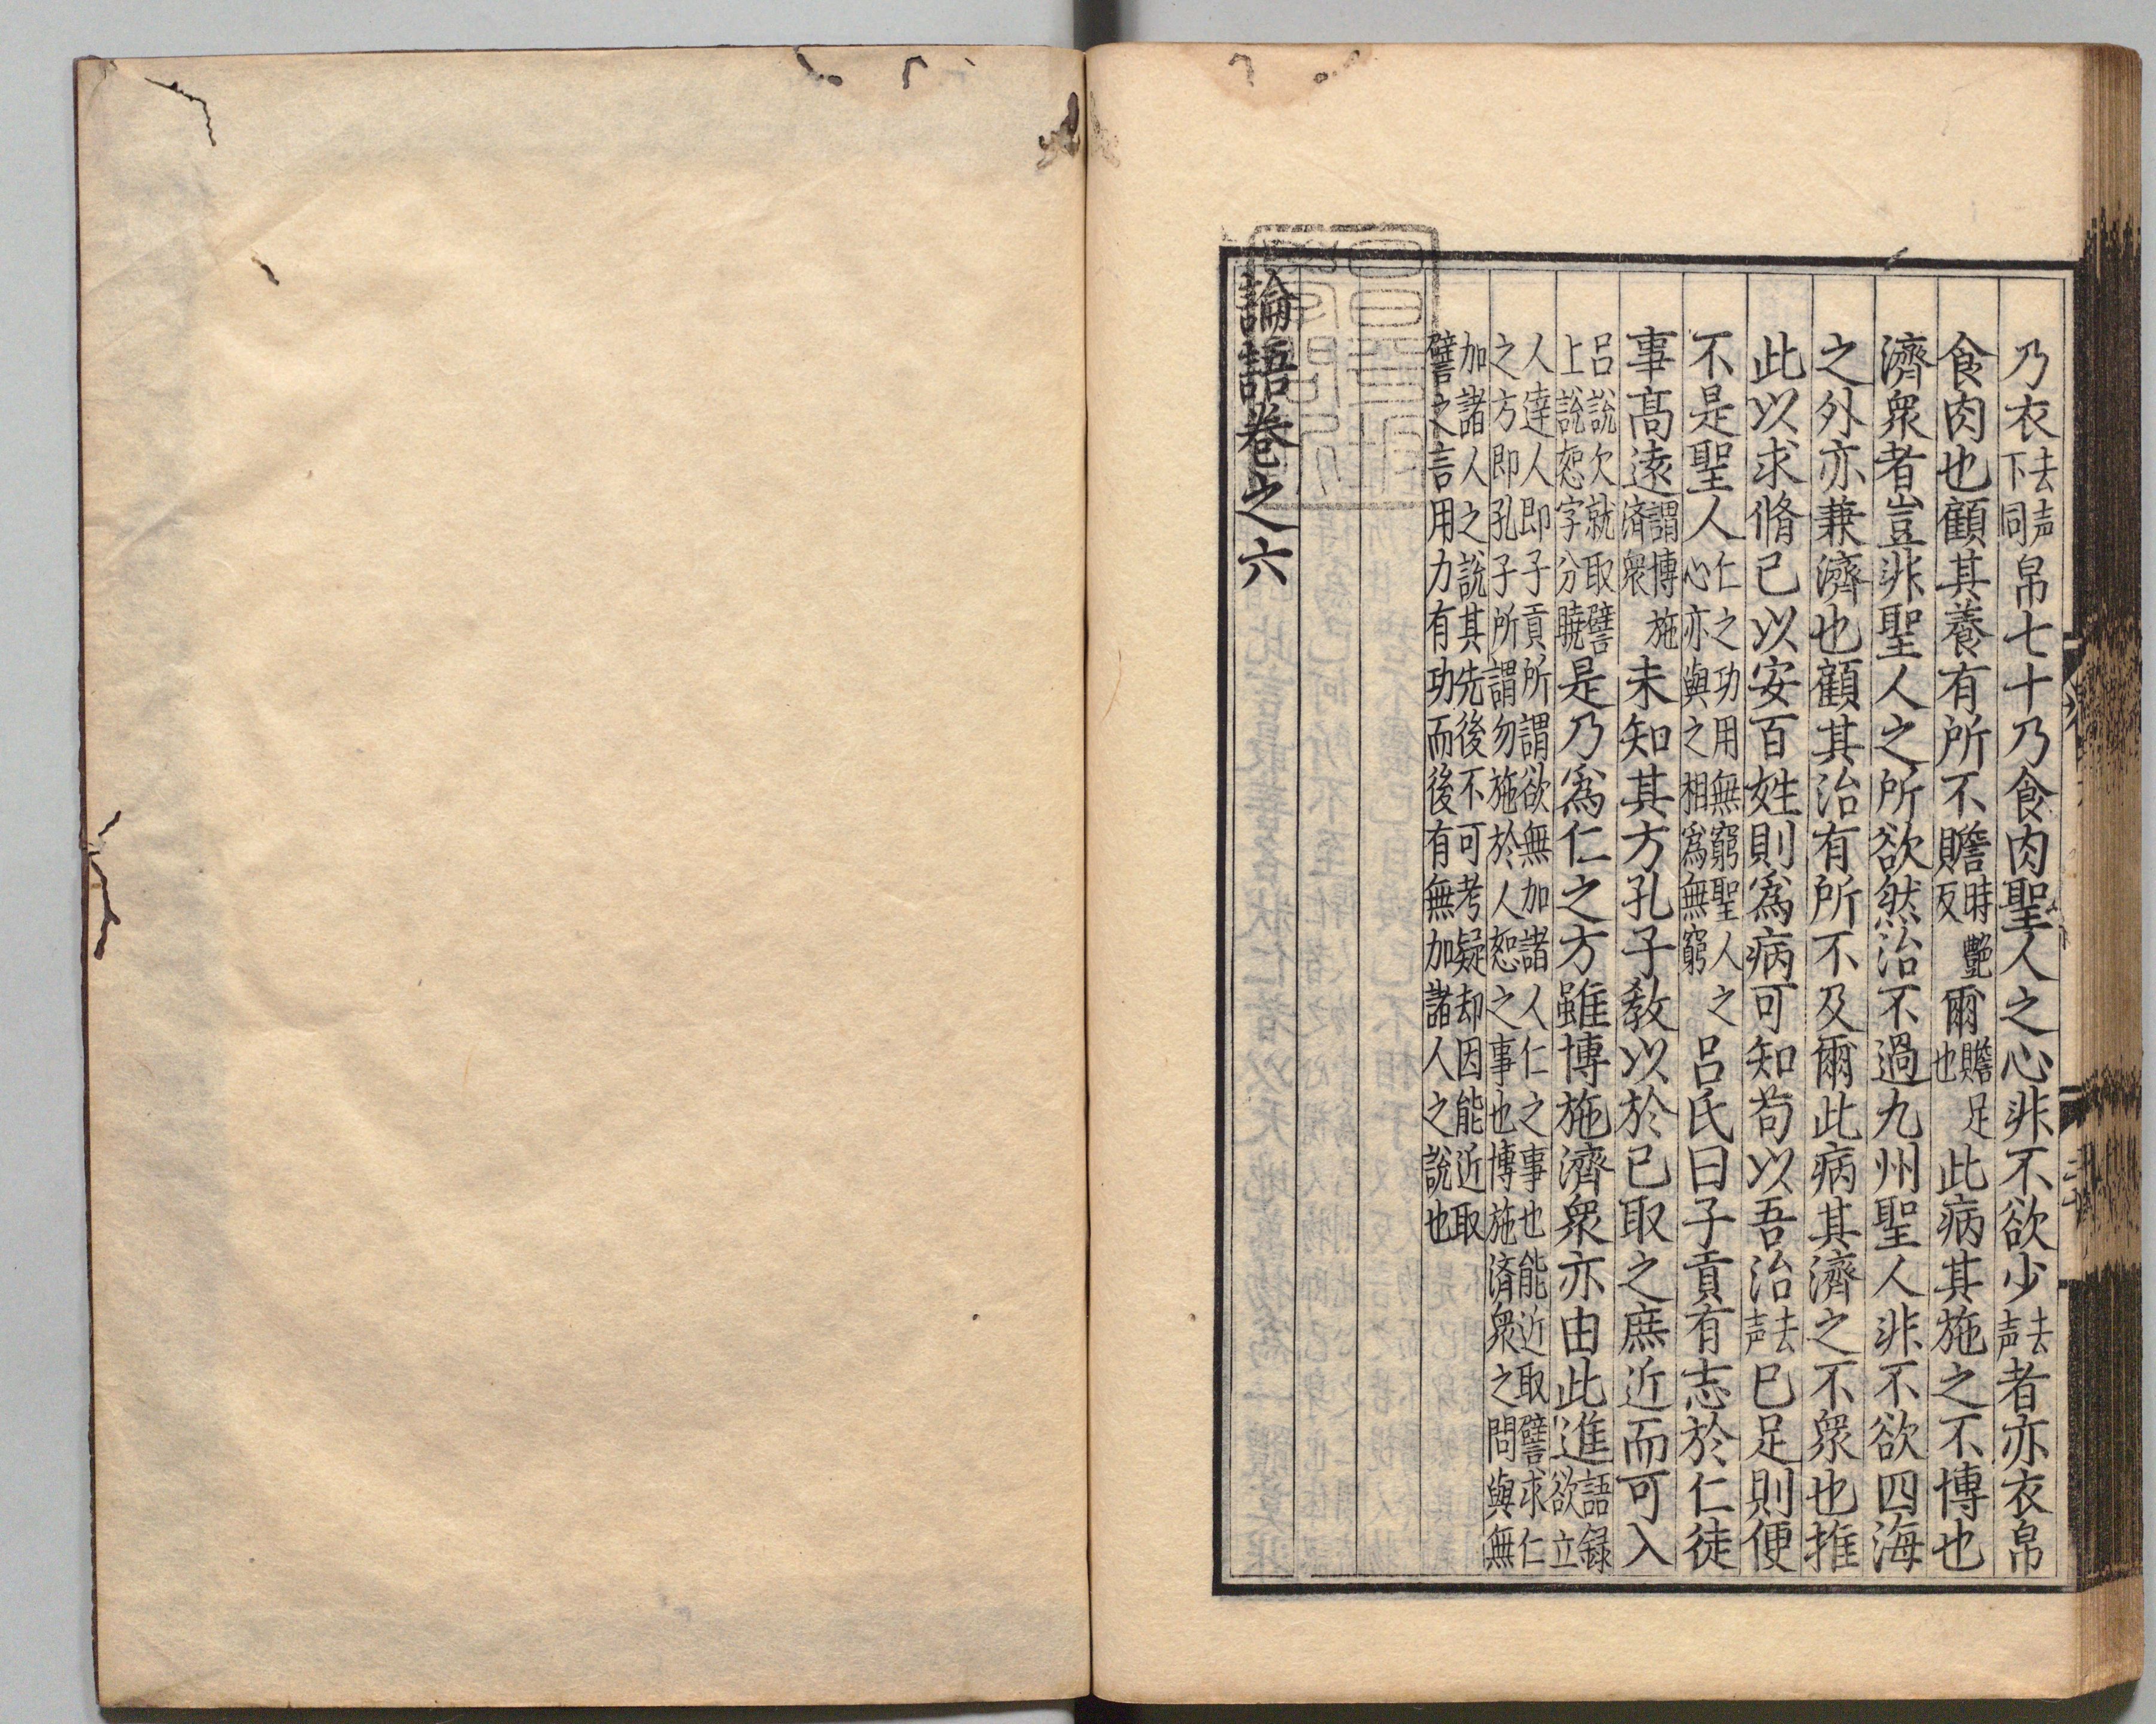 乃衣去声下同帛七十乃食肉聖人之心非不欲少去声者亦衣帛
食肉也顧其養有所不贍時艷反爾贍足也此病其施之不博也
濟衆者豈非聖人之所欲然治不過九州聖人非不欲四海
之外亦兼濟也顧其治有所不及爾此病其濟之不衆也推
此以求脩己以安百姓則爲病可知苟以吾治去声已足則便
不是聖人仁之功用無窮聖人之心亦與之相爲無窮呂氏曰子貢有志於仁徒
事高遠謂博施済衆未知其方孔子教以於己取之庶近而可入
呂說欠就取譬上說恕字分曉是乃爲仁之方雖博施濟衆亦由此進語録欲立
人達人即子貢所謂欲無加諸人仁之事也能近取譬求仁
之方即孔子所謂勿施於人恕之事也博施済衆之問與無
加諸人之說其先後不可考疑却因能近取
譬之言用力有功而後有無加諸人之說也
論語卷之六